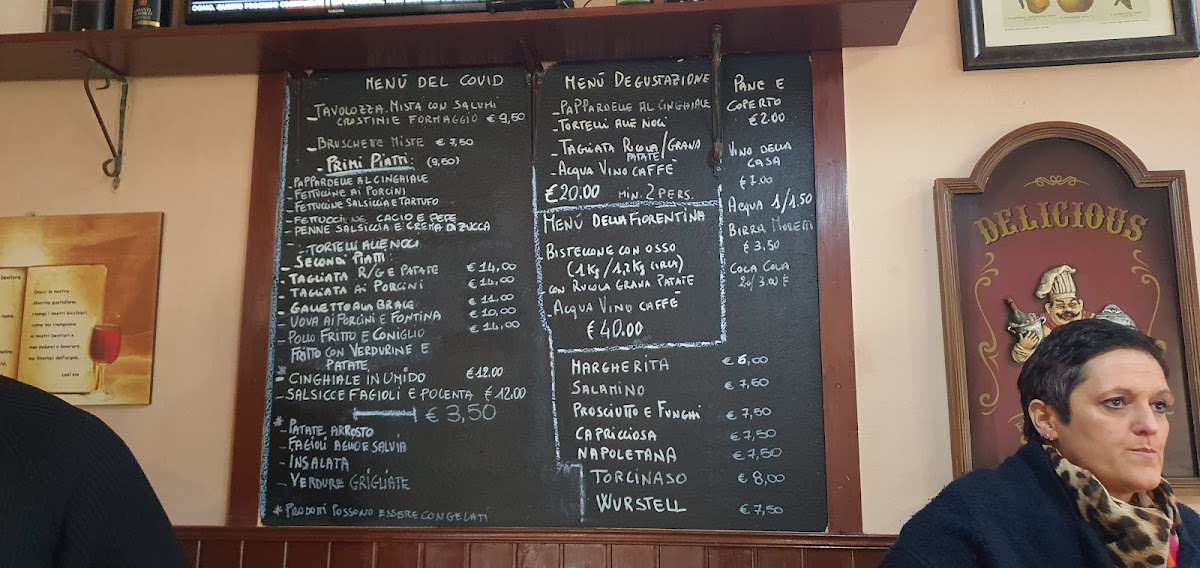 MENÚ DEL COVID
TAVOLOZZA MISTA CON SALUMI
CROSTINI E FORMAGGIO € 9,50
BRUSCHETTE MISTE € 7,50
PRIMI PIATTI: (9,50)
- PAPPARDELLE AL CINGHIALE
- FETTUCINE AI PORCINI
- FETTUCINE SALSICCIA E TARTUFO
- FETTUCCINE, CACIO E PEPE
- PENNE SALSICCIA E CREMA DI ZUCCA
- TORTELLI ALLE NOCI
- SECONDI PIATTI:
- TAGLIATA R/G E PATATE € 14,00
- TAGLIATA AI PORCINI € 14,00
- GALLETTO ALLA BRACE € 11.00
- UOVA AI PORCINI E FONTINA € 10,00
- POLLO FRITTO E CONIGLIO € 14,00
FRITTO CON VERDURINE E
PATATE
* CINGHIALE IN UMIDO € 12.00
- SALSICCE FAGIOLI E POLENTA € 12.00
€ 3,50
* PATATE ARROSTO
- FAGIOLI AGLIO E SALVIA
- INSALATA
- VERDURE GRIGLIATE
* PRODOTTI POSSONO ESSERE CONGELATI
MENÙ DEGUSTAZIONE
- PAPPARDELLE AL CINGHIALE
- TORTELLI ALLE NOCI
- TAGLIATA RUCOLA/GRANA
PATATE
- ACQUA VINO CAFFÈ
€ 20.00 MIN. 2 PERS.
MENÚ DELLA FIORENTINA
BISTECCONE CON OSSO
(1 KG / 1,2 KG CIRCA)
CON RUCOLA GRANA PATATE
- ACQUA VINO CAFFÈ
€ 40.00
MARGHERITA € 6,00
SALAMINO € 7,50
PROSCIUTTO E FUNGHI € 7,50
CAPRICCIOSA € 7,50
NAPOLETANA € 7,50
TORCINASO € 8,00
WURSTELL € 7,50
PANE E
COPERTO
€ 2.00
VINO DELLA
CASA
€ 7.00
ACQUA 1/1.50
BIRRA MORETTI
€ 3.50
COLA COLA
20/3.00 €
DELICIOUS